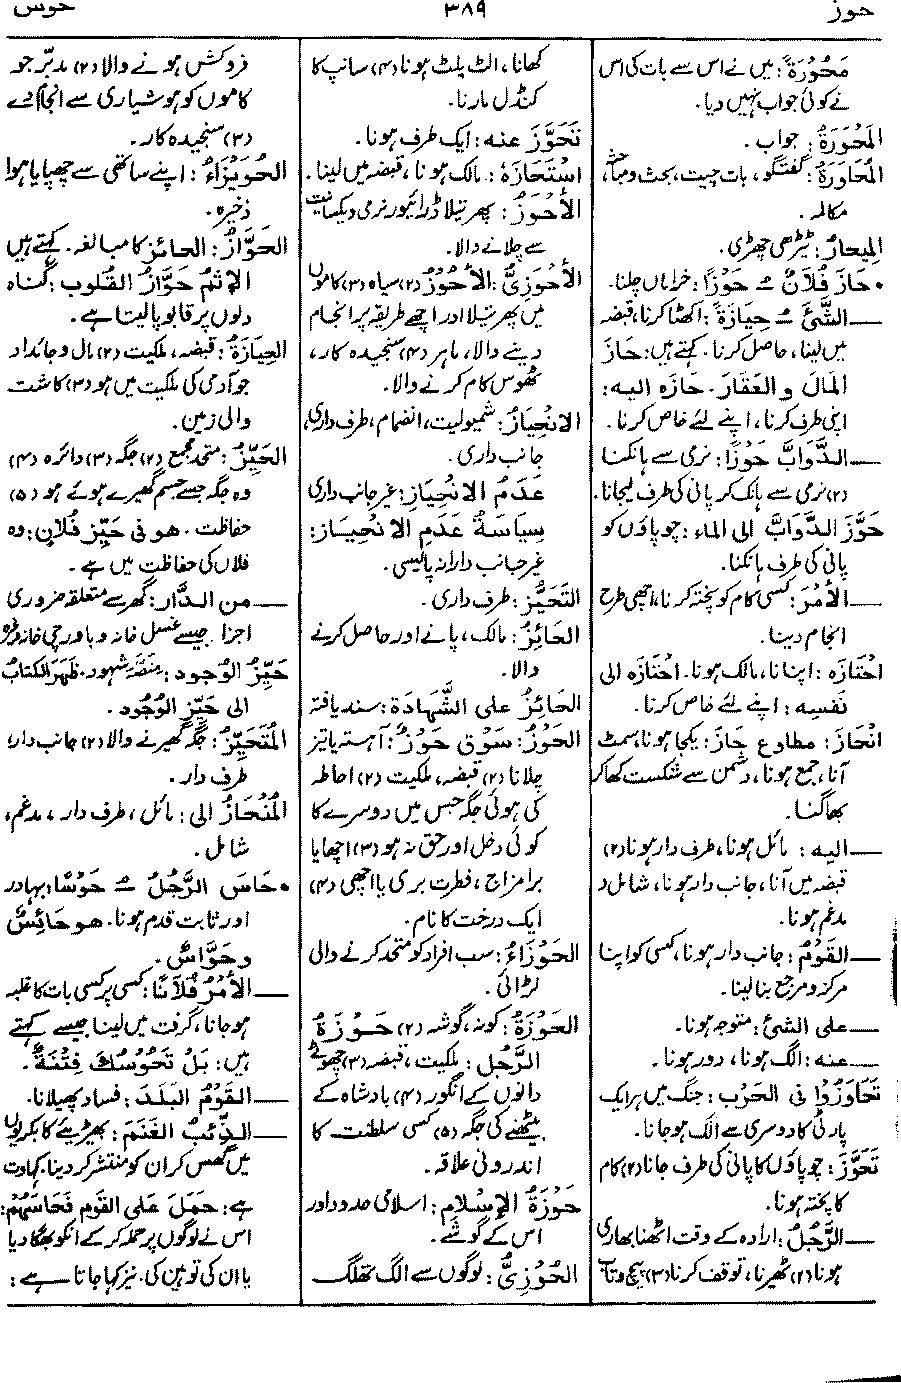 حوز
۳۸۹
حوس
مَحُورَةً: میں نے اس سے بات کی اس
نے کوئی جواب نہیں دیا۔
المَحُورَةُ: جواب۔
المُحَاوَرَةُ: گفتگو، بات چیت، بحث ومباحثہ،
مکالمہ۔
المِیحارُ: ٹیڑھی چھڑی۔
• حَازَ فُلَانٌ ـُ حَوْزًا: خراماں چلنا۔
ـــ الشَّیْءَ ـُ حِیَازَةً: اکٹھا کرنا، قبضہ
میں لینا، حاصل کرنا۔ کہتے ہیں: حَازَ
المَالَ والعَقَارَ۔ حَازَه الیه:
اپنی طرف کرنا، اپنے لئے خاص کرنا۔
ـــ الدَّوَابَّ حَوْزًا: نرمی سے ہانکنا
(۲) نرمی سے ہانک کر پانی کی طرف لیجانا۔
حَوَّزَ الدَّوَابَّ الی الماء: چوپاؤں کو
پانی کی طرف ہانکنا۔
ـــ الأَمْرَ: کسی کام کو پختہ کرنا، اچھی طرح
انجام دینا۔
احْتَازَه: اپنانا، مالک ہونا۔ احْتَازَه الی
نَفْسِه: اپنے لئے خاص کرنا۔
انْحَازَ: مطاوع حَازَ: یکجا ہونا، سمٹ
آنا، جمع ہونا، دشمن سے شکست کھا کر
بھاگنا۔
ـــ الیه: مائل ہونا، طرف دار ہونا (۲)
قبضہ میں آنا، جانب دار ہونا، شامل و
مدغم ہونا۔
ـــ القَوْمُ: جانب دار ہونا، کسی کو اپنا
مرکز و مرجع بنا لینا۔
ـــ علی الشئ: متوجہ ہونا۔
ـــ عنه: الگ ہونا، دور ہونا۔
تَحَاوَزُوا فی الحَرْب: جنگ میں ہر ایک
پارٹی کا دوسری سے الگ ہو جانا۔
تَحَوَّزَ: چوپاؤں کا پانی کی طرف جانا (۲) کام
کا پختہ ہونا۔
ـــ الرَّجُلُ: ارادہ کے وقت اٹھنا بھاری
ہونا (۲) ٹھیرنا، توقف کرنا (۳) پیچ وتاب
کھانا، الٹ پلٹ ہونا (۴) سانپ کا
کنڈل مارنا۔
تَحَوَّزَ عنه: ایک طرف ہونا۔
اسْتَحَازَهُ: مالک ہونا، قبضہ میں لینا۔
الأَحْوَزُ: پھرتیلا ڈرائیور نرمی ویکسانیت
سے چلانے والا۔
الأَحْوَزِیُّ: الأَحْوَزُ (۲) سیاہ (۳) کاموں
میں پھرتیلا اور اچھے طریقہ پر انجام
دینے والا، ماہر (۴) سنجیدہ کار،
ٹھوس کام کرنے والا۔
الانْحِیَازُ: شمولیت، انضمام، طرف داری،
جانب داری۔
عَدَمُ الانْحِیَاز: غیر جانب داری
سِیَاسَةُ عَدَمِ الانْحِیَاز:
غیر جانب دارانہ پالیسی۔
التَّحَیُّزُ: طرف داری۔
الحَائِزُ: مالک، پانے اور حاصل کرنے
والا۔
الحَائِزُ علی الشَّهَادَة: سند یافتہ
الحَوْزُ: سَوْق حَوْزٌ: آہستہ یا تیز
چلانا (۲) قبضہ، ملکیت (۲) احاطہ
کی ہوئی جگہ جس میں دوسرے کا
کوئی دخل اور حق نہ ہو (۳) اچھا یا
برا مزاج، فطرت بری یا اچھی (۴)
ایک درخت کا نام۔
الحَوْزَاءُ: سب افراد کو متحد کرنے والی
لڑائی۔
الحَوْزَةُ: کونہ، گوشہ (۲) حَوْزَةُ
الرَّجُل: ملکیت، قبضہ (۳) چھوٹے
دانوں کے انگور (۴) بادشاہ کے
بیٹھنے کی جگہ (۵) کسی سلطنت کا
اندرونی علاقہ۔
حَوْزَةُ الإِسْلَام: اسلامی حدود اور
اس کے گوشے۔
الحُوزِیُّ: لوگوں سے الگ تھلگ
فروکش ہونے والا (۲) مدبّر جو
کاموں کو ہوشیاری سے انجام دے
(۳) سنجیدہ کار۔
الحُوَیْزَاءُ: اپنے ساتھی سے چھپایا ہوا
ذخیرہ۔
الحَوَّازُ: الحائز کا مبالغہ۔ کہتے ہیں
الإِثْمُ حَوَّازُ القُلوب: گناہ
دلوں پر قابو پا لیتا ہے۔
الحِیَازَةُ: قبضہ، ملکیت (۲) مال وجائداد
جو آدمی کی ملکیت میں ہو (۳) کاشت
والی زمین۔
الحَیِّزُ: متحد مجمع (۲) جگہ (۳) دائرہ (۴)
وہ جگہ جسے جسم گھیرے ہوئے ہو (۵)
حفاظت۔ هو فی حَیِّز فُلَانٍ: وہ
فلاں کی حفاظت میں ہے۔
ـــ من الدَّار: گھر سے متعلقہ ضروری
اجزا جیسے غسل خانہ و باورچی خانہ وغیرہ
حَیِّزُ الوُجود: منصّہ شہود۔ ظَهَرَ الکتابُ
الی حَیِّزِ الوُجُود۔
المُتَحَیِّزُ: جگہ گھیرنے والا (۲) جانب دار،
طرف دار۔
المُنْحَازُ الی: مائل، طرف دار، مدغم،
شامل۔
• حَاسَ الرَّجُلُ ـُ حَوْسًا: بہادر
اور ثابت قدم ہونا۔ هو حَائِسٌ
وحَوَّاسٌ۔
ـــ الأَمْرُ فُلَانًا: کسی پر کسی بات کا غلبہ
ہو جانا، گرفت میں لینا جیسے کہتے
ہیں: بَلْ تَحُوسُكَ فِتْنَةٌ۔
ـــ القَوْمُ البَلَدَ: فساد پھیلانا۔
ـــ الذِّئْبُ الغَنَمَ: بھیڑیے کا بکریوں
میں گھس کر ان کو منتشر کر دینا۔ کہاوت
ہے: حَمَلَ عَلَی القَوْم فَحَاسَهُمْ:
اس نے لوگوں پر حملہ کر کے انکو بھگا دیا
یا ان کی توہین کی۔ نیز کہا جاتا ہے: